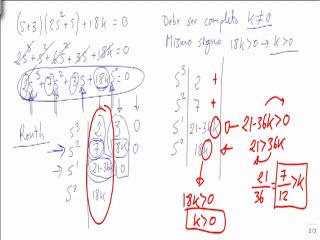 (s+3)(2s²+s)+18k=0
2s³+s²+6s²+3s+18k=0
2s³+7s²+3s+18k s⁰=0
Routh
s³ 2 3 0
s² 7 18k 0
s¹ 21-36k 0
s⁰ 18k
Debe ser completo k≠0
Mismo signo 18k>0→k>0
s³ 2 +
s² 7 +
s¹ 21-36k ← 21-36k>0
s⁰ 18k ← 21>36k
18k>0
k>0
21/36 = 7/12 >k
2/2